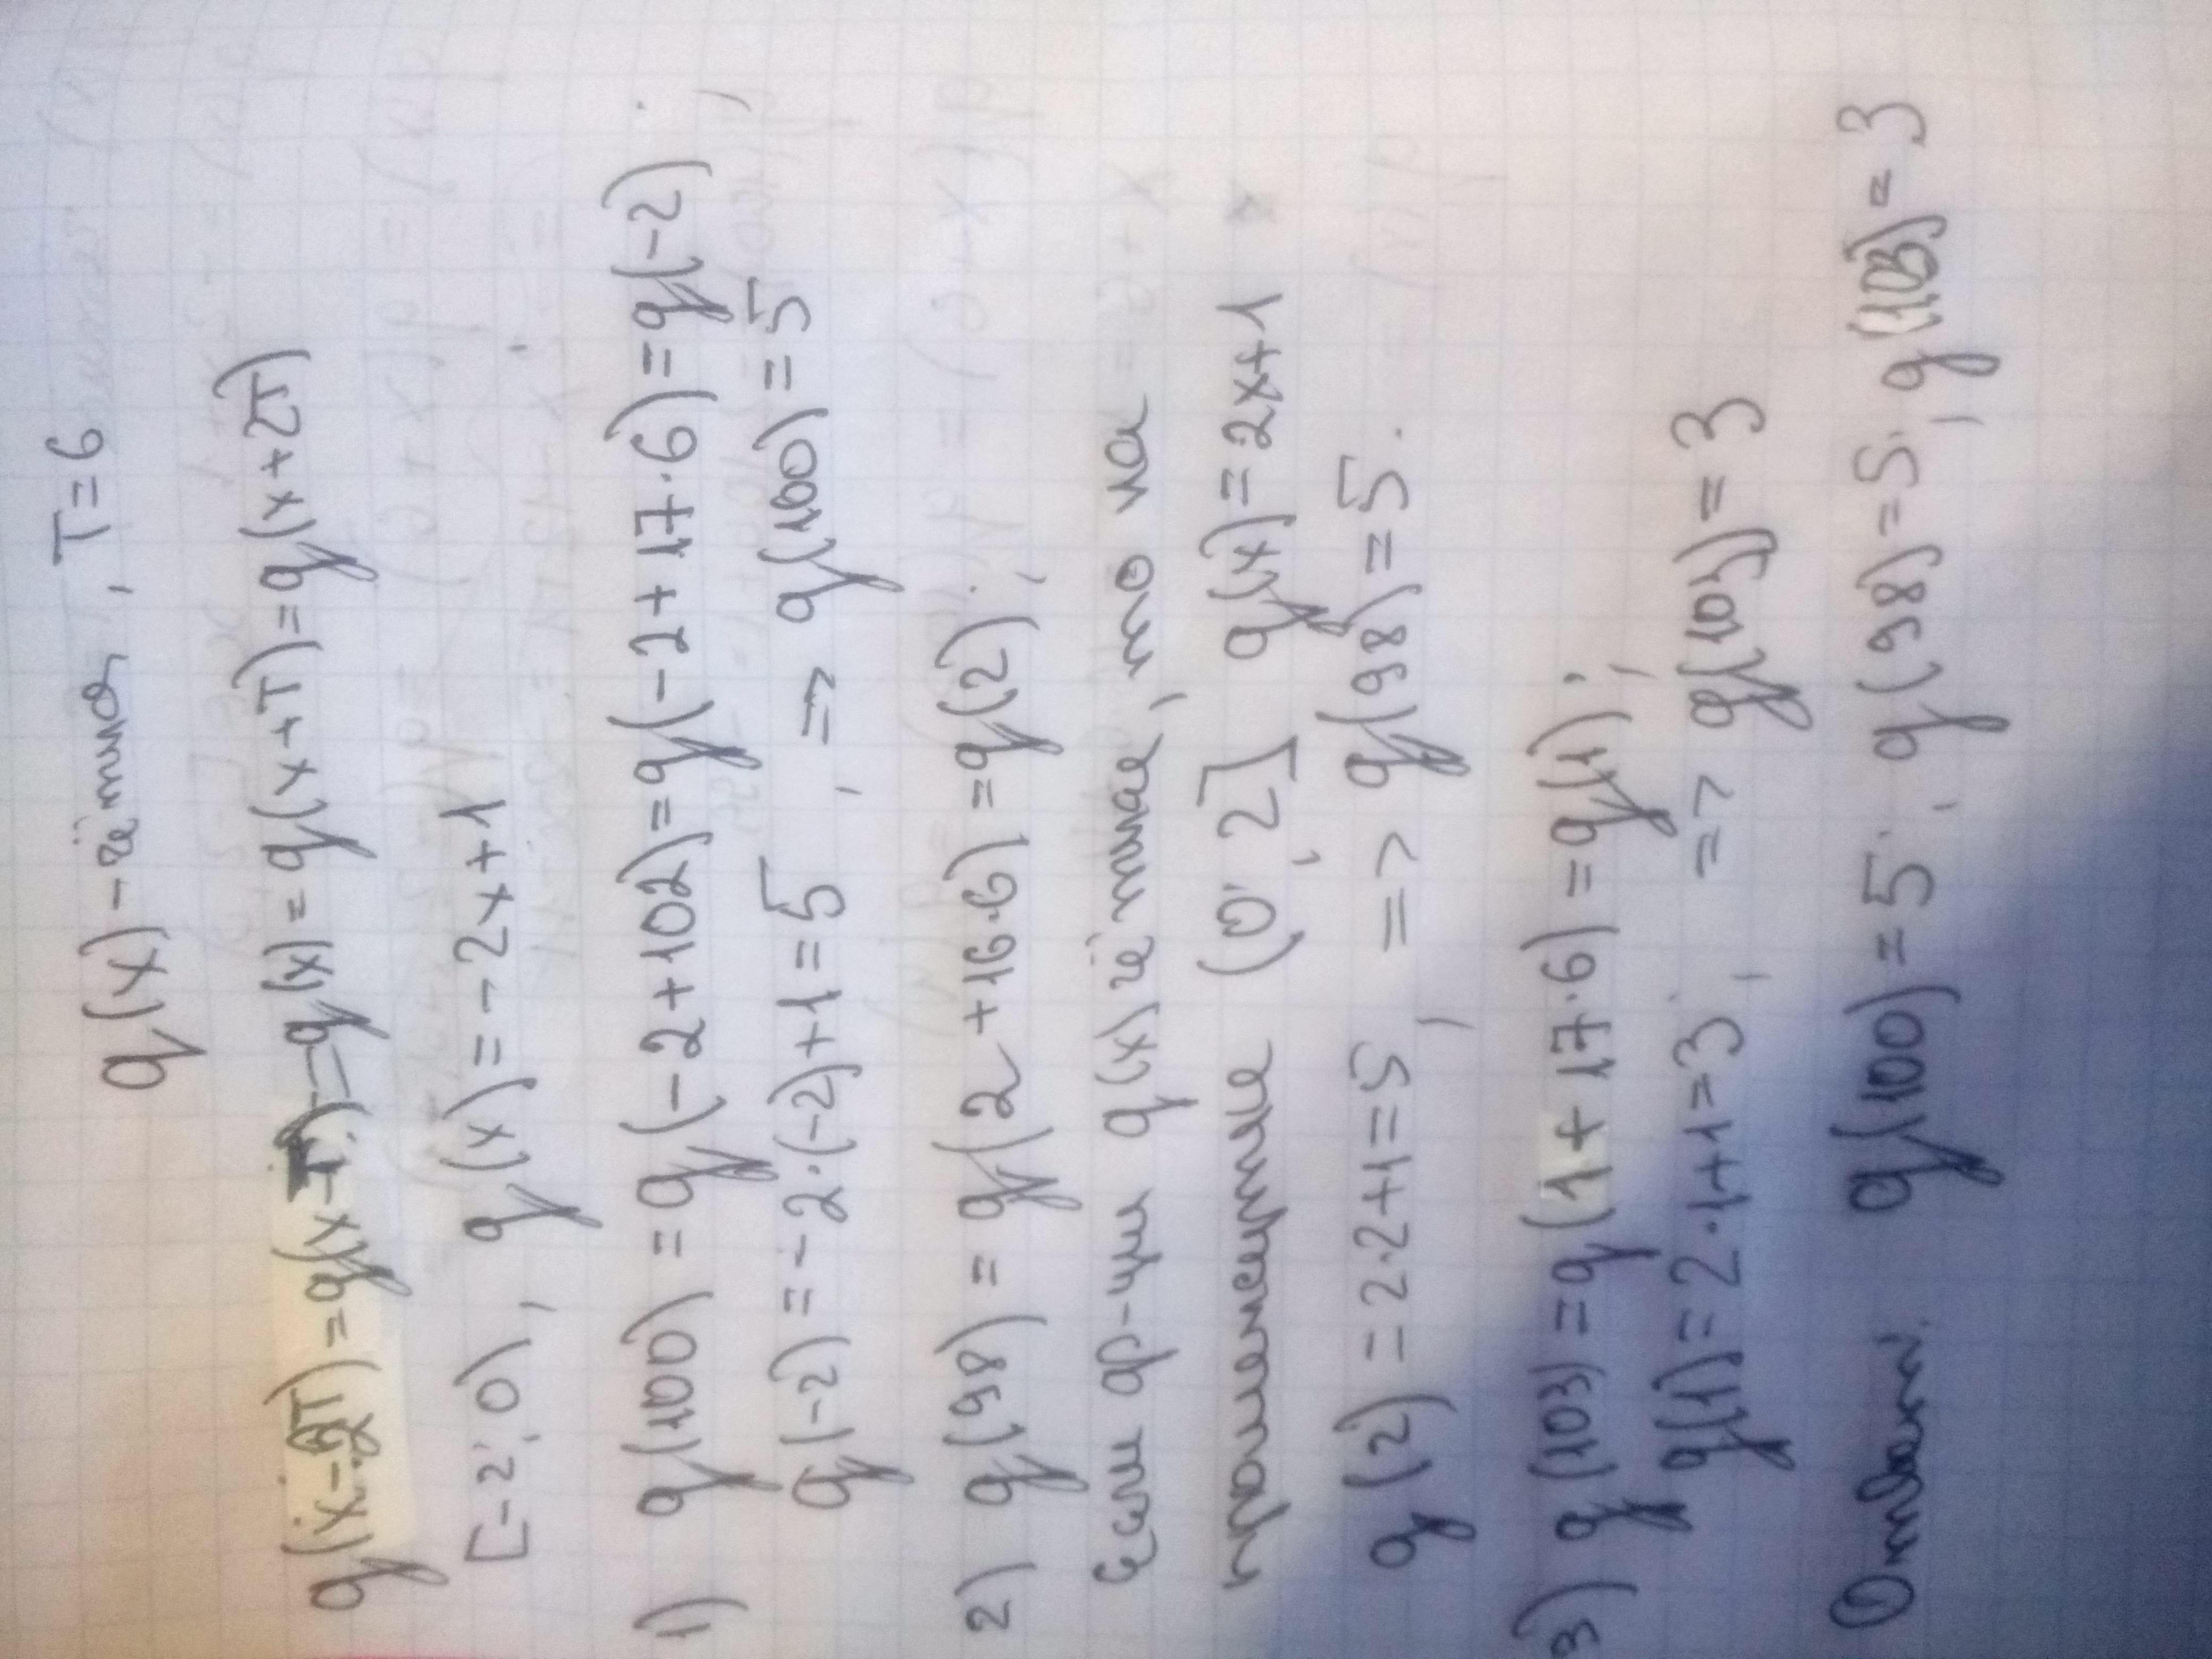 q(x) - чётная, T=6
q(x-2T)=q(x-T)=q(x)=q(x+T)=q(x+2T)
[-2; 0), q(x)=-2x+1
1) q(100)=q(-2+102)=q(-2+17·6)=q(-2);
q(-2)=-2·(-2)+1=5, => q(100)=5
2) q(98)=q(2+16·6)=q(2);
Если ф-ция q(x) чётная, то на
промежутке (0; 2] q(x)=2x+1
q(2)=2·2+1=5, => q(98)=5.
3) q(103)=q(1+17·6)=q(1);
q(1)=2·1+1=3, => q(103)=3
Ответ: q(100)=5; q(98)=5; q(103)=3